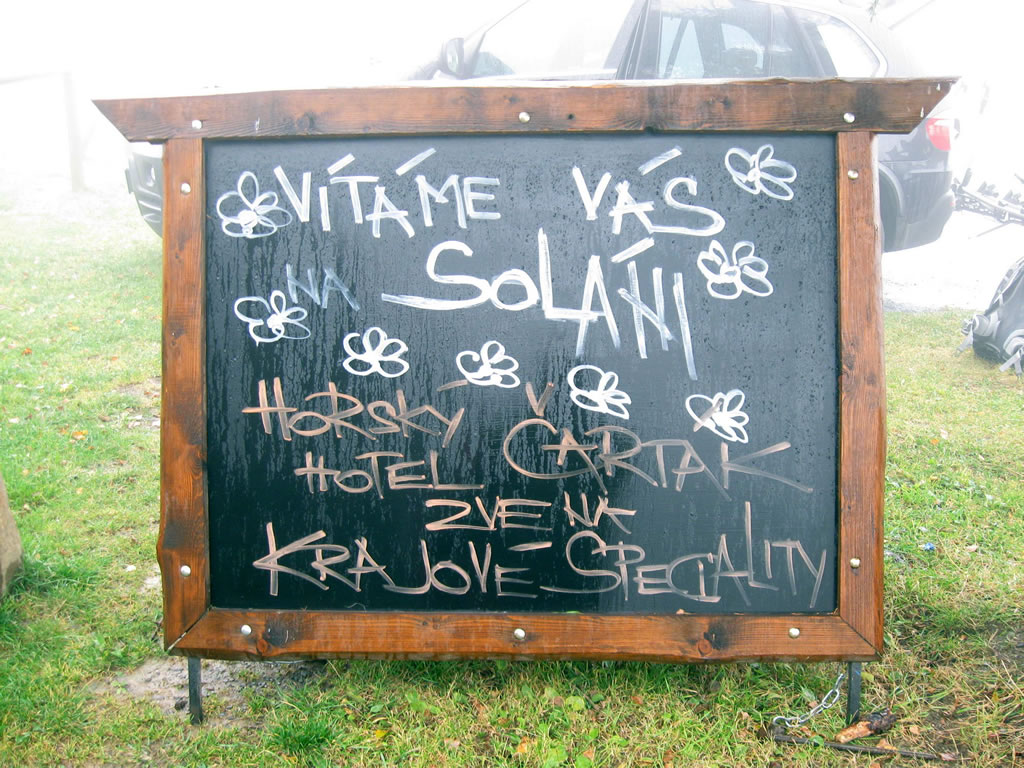 VÍTÁME VÁS
NA SOLÁNI
HORSKY
HOTEL ČARTAK
ZVE NA
KRAJOVÉ SPECIALITY